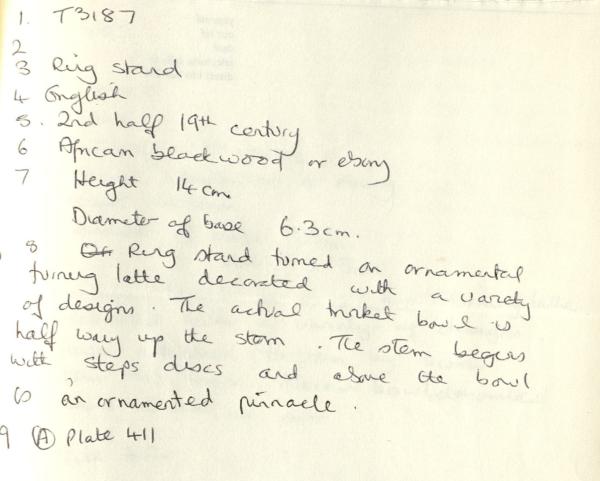 1. T3187
2
3 Ring stand
4 English
5. 2nd half 19th century
6 African blackwood or ebony
7 Height 14cm.
Diameter of base 6.3cm.
8 Ring stand turned on ornamental
turning latte decorated with a variety
of designs. The actual trinket bowl is
half way up the stem. The stem begins
with steps discs and above the bowl
is an ornamented pinnacle.
9 (A) Plate 411